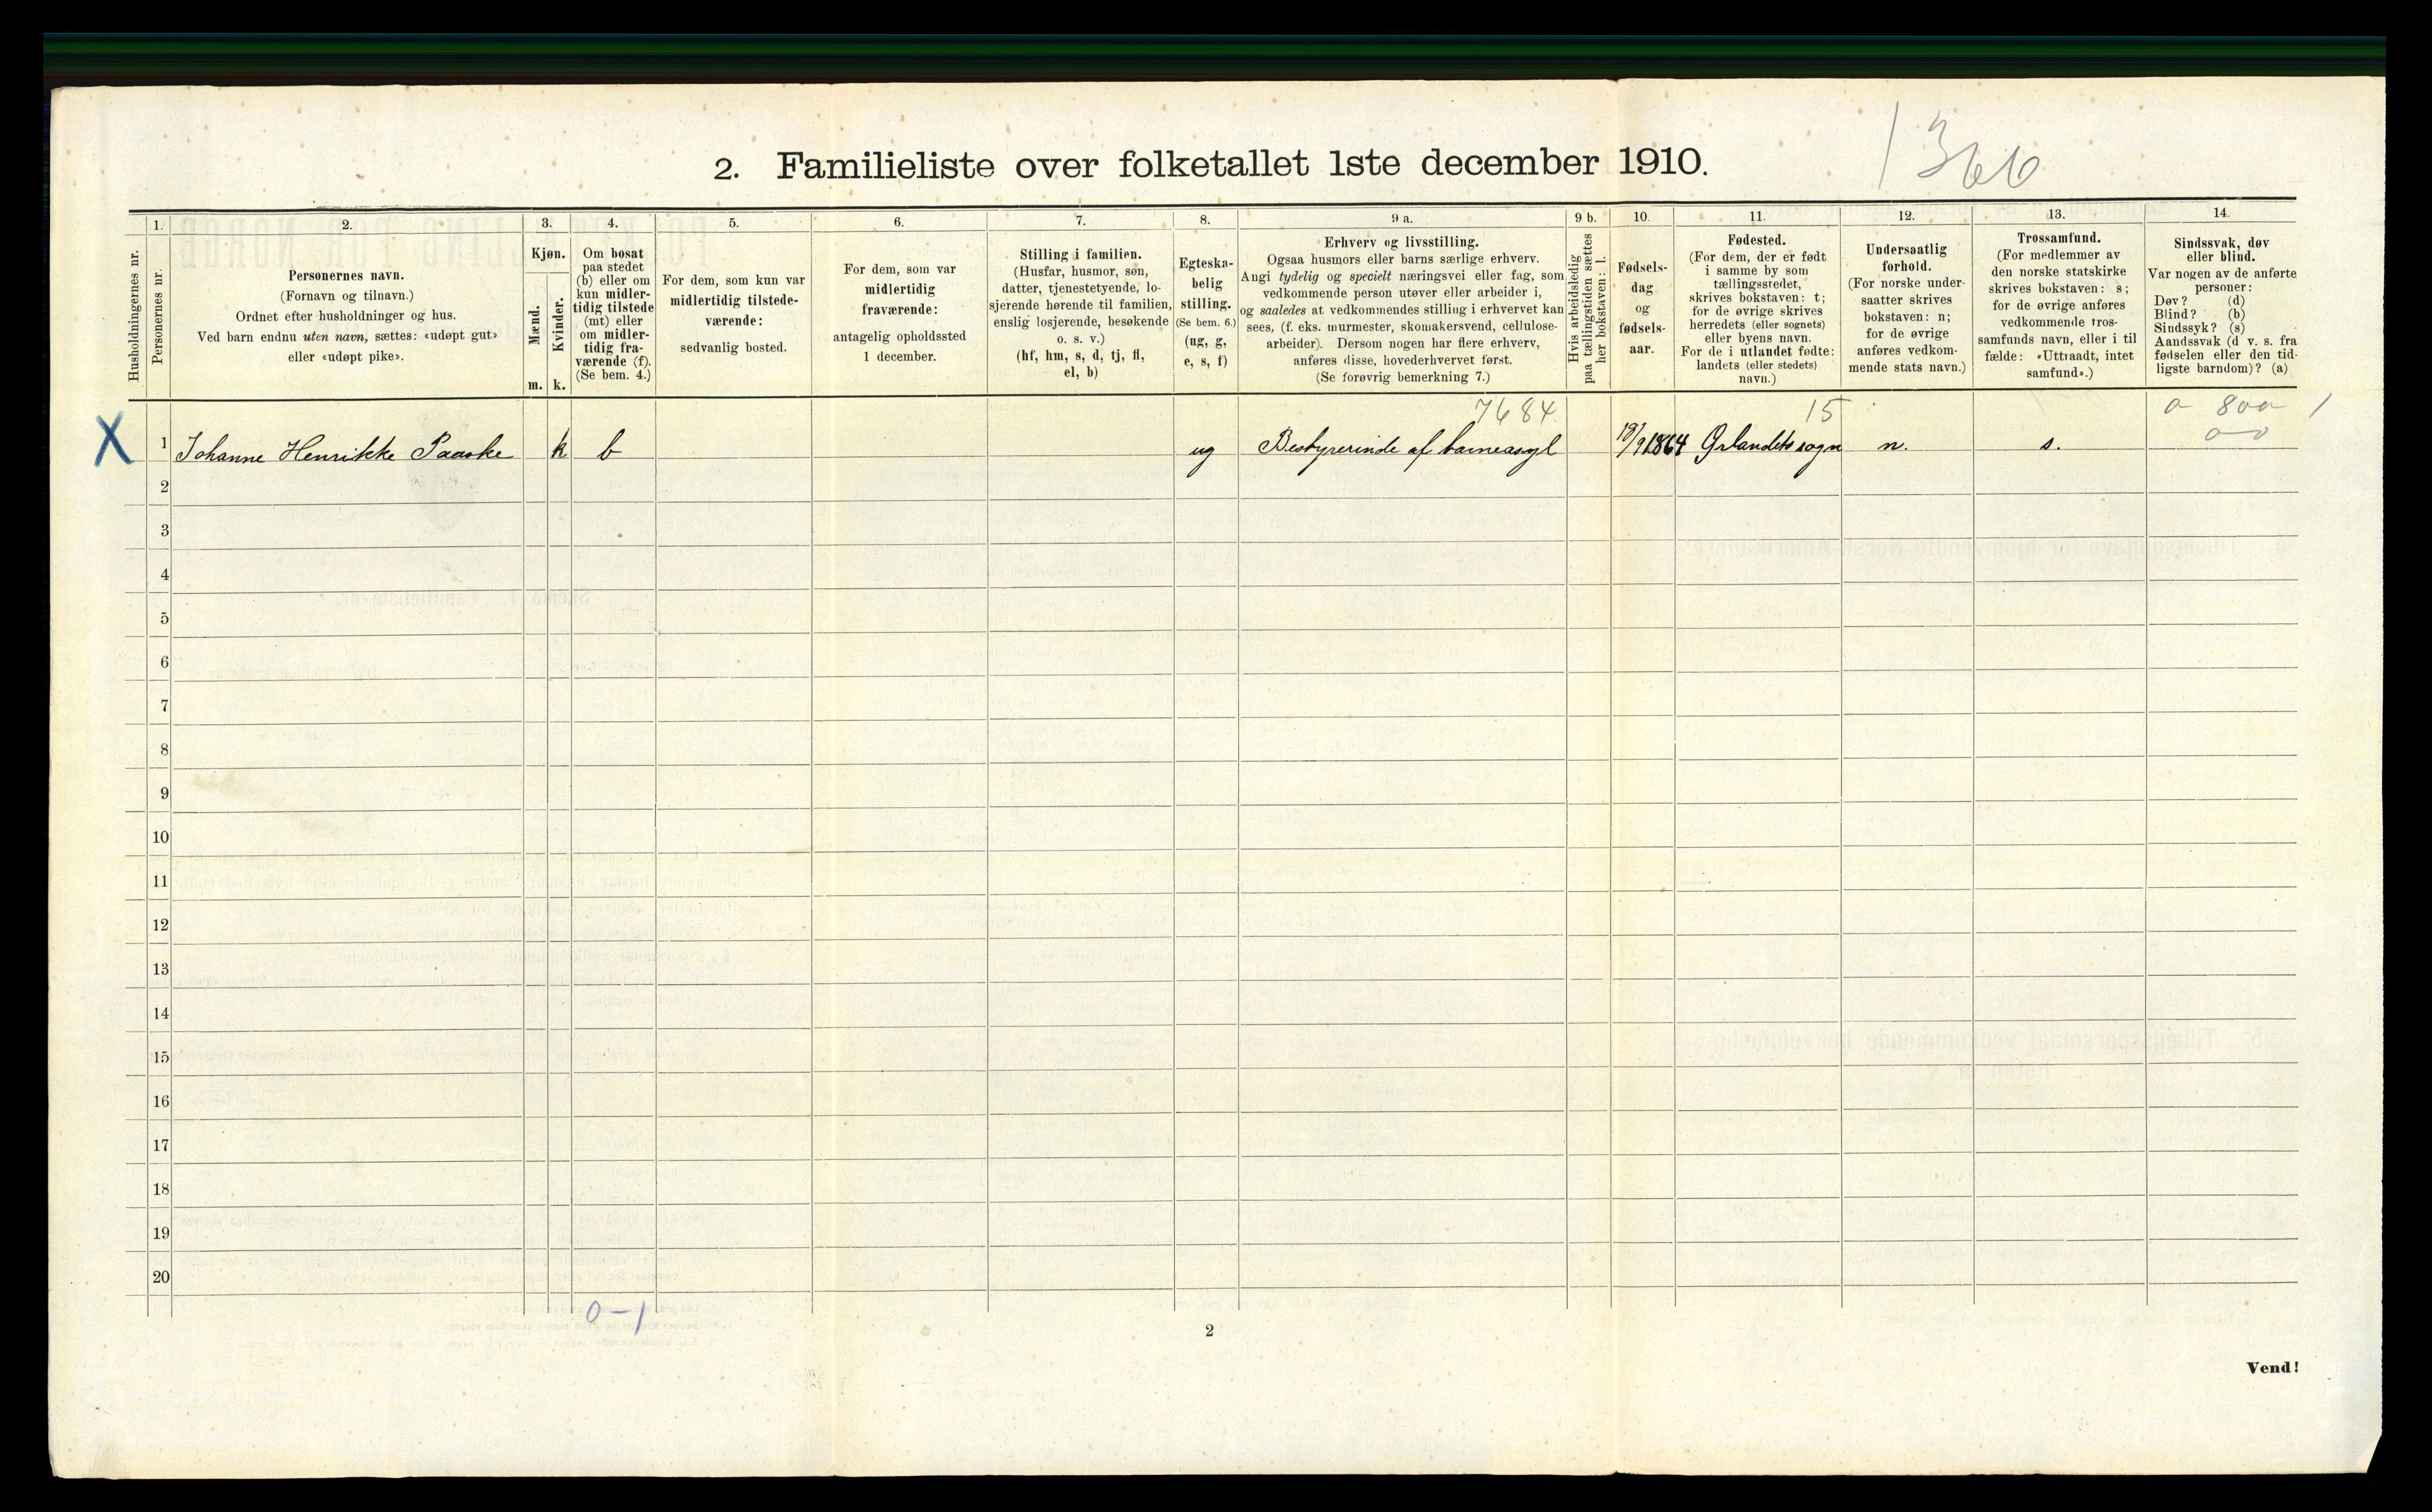 1366
2. Familieliste over folketallet 1ste december 1910.
Husholdningernes nr.
1.
Personernes nr.
2.
Personernes navn.
(Fornavn og tilnavn.)
Ordnet efter husholdninger og hus.
Ved barn endnu uten navn, sættes: «udøpt gut»
eller «udøpt pike».
3.
Kjøn.
Mænd.
m.
Kvinder.
k.
4.
Om bosat
paa stedet
(b) eller om
kun midler-
tidig tilstede
(mt) eller
om midler-
tidig fra-
værende (f).
(Se bem. 4.)
5.
For dem, som kun var
midlertidig tilstede-
værende:
sedvanlig bosted.
6.
For dem, som var
midlertidig
fraværende:
antagelig opholdssted
1 december.
7.
Stilling i familien.
(Husfar, husmor, søn,
datter, tjenestetyende, lo-
sjerende hørende til familien,
enslig losjerende, besøkende
o. s. v.)
(hf, hm, s, d, tj, fl,
el, b)
8.
Egteska-
belig
stilling.
(Se bem. 6.)
(ug, g,
e, s, f)
9 a.
Erhverv og livsstilling.
Ogsaa husmors eller barns særlige erhverv.
Angi tydelig og specielt næringsvei eller fag, som
vedkommende person utøver eller arbeider i,
og saaledes at vedkommendes stilling i erhvervet kan
sees, (f. eks. murmester, skomakersvend, cellulose-
arbeider). Dersom nogen har flere erhverv,
anføres disse, hovederhvervet først.
(Se forøvrig bemerkning 7.)
9 b.
Hvis arbeidsledig
paa tællingstiden sættes
her bokstaven: l.
10.
Fødsels-
dag
og
fødsels-
aar.
11.
Fødested.
(For dem, der er født
i samme by som
tællingsstedet,
skrives bokstaven: t;
for de øvrige skrives
herredets (eller sognets)
eller byens navn.
For de i utlandet fødte:
landets (eller stedets)
navn.)
12.
Undersaatlig
forhold.
(For norske under-
saatter skrives
bokstaven: n;
for de øvrige
anføres vedkom-
mende stats navn.)
13.
Trossamfund.
(For medlemmer av
den norske statskirke
skrives bokstaven: s;
for de øvrige anføres
vedkommende tros-
samfunds navn, eller i til
fælde: «Uttraadt, intet
samfund».)
14.
Sindssvak, døv
eller blind.
Var nogen av de anførte
personer:
Døv? (d)
Blind? (b)
Sindssyk? (s)
Aandssvak (d v. s. fra
fødselen eller den tid-
ligste barndom)? (a)
7684 15 0 800 1
X 1 Johanne Henrikke Paaske k b ug Bestyrerinde af barneasyl 18/9 1864 Ørlandets sogn n. s. 00
2
3
4
5
6
7
8
9
10
11
12
13
14
15
16
17
18
19
20
0-1
2
Vend!